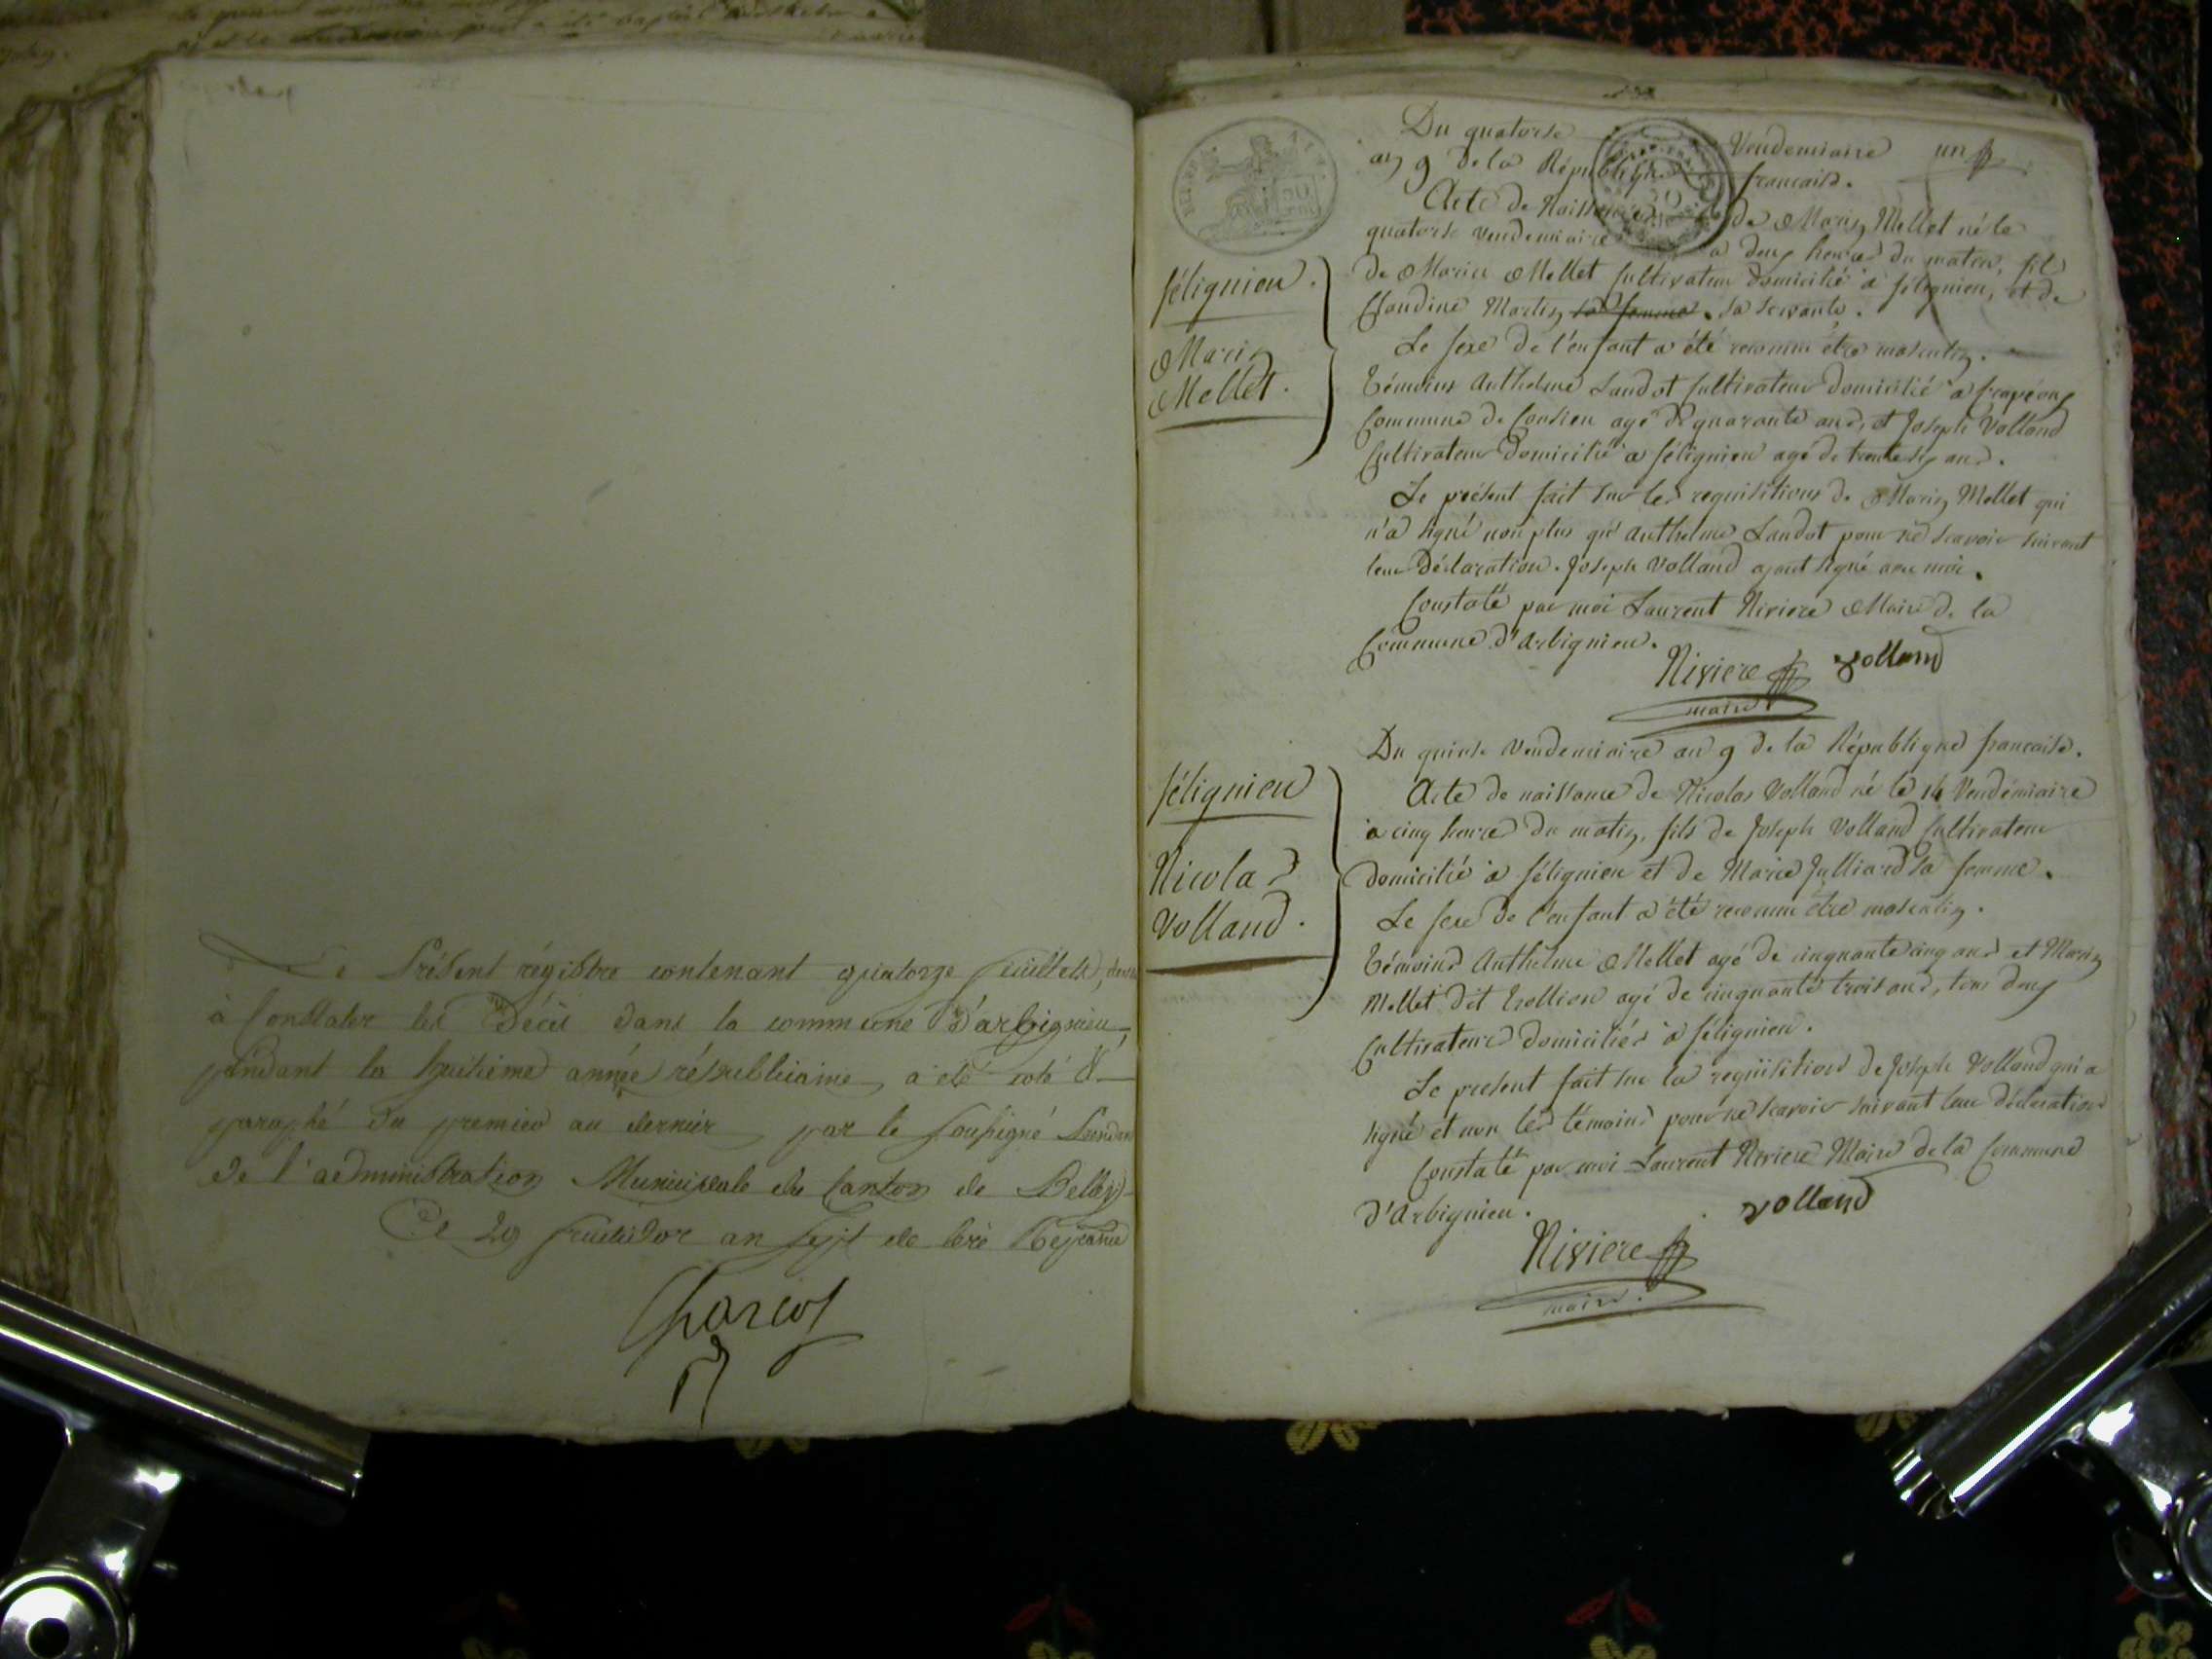 Le Présent régistre contenant quatorze feuillets,
à Constater les Décès dans la commune D'arbignieu,
pendant la huitieme année républicaine, a été coté &
paraphé du premier au dernier par le soussigné
de l'administration Municipale du Canton de Belley
Ce 29 fructidor an sept de l'ere
Charcot
un
Du quatorse Vendemiaire
an 9 de la République francaise.
Acte de Naissance de Marin Mellet né le
quatorse vendemiaire a deux heures du matin, fils
de Marin Mellet Cultivateur domicilié a félignieu, et de
Claudine Martin sa femme. sa servante.
Le sexe de l'enfant a été reconnu être masculin.
Témoins Anthelme Landot Cultivateur domicilié a
Commune de Conzieu agé de quarante ans, et Joseph Volland
Cultivateur domicilié a félignieu agé de trente six ans.
Le présent fait sur les requisitions de Marin Mellet qui
n'a signé non plus qu'Anthelme Landot pour ne scavoir suivant
leur déclaration. Joseph Volland ayant signé avec moi.
Constaté par moi Laurent Riviere Maire de la
Commune d'Arbignieu.
Riviere volland
maire.
félignieu.
Marin
Mellet.
Du quinse Vendemiaire an 9 de la République francaise.
Acte de naissance de Nicolas Volland né le 14 Vendémiaire
a cinq heures du matin, fils de Joseph Volland Cultivateur
domicilié a félignieu et de Marie Julliard sa femme.
Le sexe de l'enfant a été reconnu être masculin.
Témoins Anthelme Mellet agé de cinquante cinq ans et Marin
Mellet dit agé de cinquante trois ans, tous deux
Cultivateurs domiciliés a félignieu.
Le présent fait sur la requisition de Joseph Volland qui a
signé et non les témoins pour ne scavoir suivant leur déclaration
Constaté par moi Laurent Riviere Maire de la Commune
d'Arbignieu.
volland
Riviere
maire.
félignieu
Nicolas
Volland.